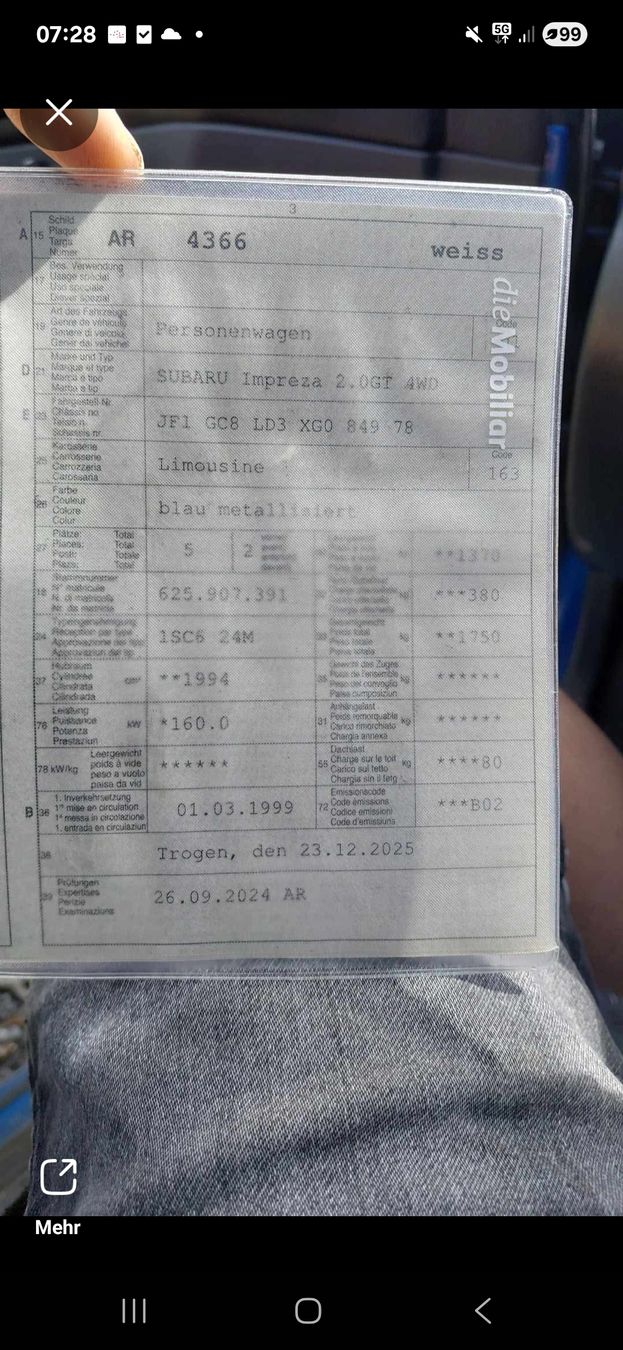 07:28
5G
99
3
A 15 Schild
Plaque
Targa
Numer
AR 4366 weiss
17 Bes. Verwendung
Usage spécial
Uso speciale
Diever spezial
19 Art des Fahrzeugs
Genre de véhicule
Genere di veicolo
Gener dal vehichel
Personenwagen
Code
dieMobiliar
D 21 Marke und Typ
Marque et type
Marca e tipo
Marca e tip
SUBARU Impreza 2.0GT 4WD
E 23 Fahrgestell-Nr.
Châssis no
Telaio n.
Schassis nr.
JF1 GC8 LD3 XG0 849 78
25 Karosserie
Carrosserie
Carrozzeria
Carossaria
Limousine
Code
163
26 Farbe
Couleur
Colore
Colur
blau metallisiert
27 Plätze: Total
Places: Total
Posti: Totale
Plazs: Total
5 2
kg **1370
18 Stammnummer
N° matricule
N. di matricola
Nr. da matricla
625.907.391
kg ***380
24 Typengenehmigung
Réception par type
Approvazione del tipo
Approvaziun dal tip
1SC6 24M
33 Gesamtgewicht
Poids total
Peso totale
Paisa totala
kg **1750
37 Hubraum
Cylindrée
Cilindrata
Cilindrada
cm³ **1994
35 Gewicht des Zuges
Poids de l'ensemble
Peso del convoglio
Paisa cumposiziun
kg ******
76 Leistung
Puissance
Potenza
Prestaziun
kW *160.0
31 Anhängelast
Poids remorquable
Carico rimorchiato
Chargia annexa
kg ******
78 kW/kg Leergewicht
poids à vide
peso a vuoto
paisa da vid
******
55 Dachlast
Charge sur le toit
Carico sul tetto
Chargia sin il tetg
kg ****80
B 36 1. Inverkehrsetzung
1re mise en circulation
1a messa in circolazione
1. entrada en circulaziun
01.03.1999
72 Emissionscode
Code émissions
Codice emissioni
Code d'emissiuns
***B02
38 Trogen, den 23.12.2025
39 Prüfungen
Expertises
Perizie
Examinaziuns
26.09.2024 AR
Mehr